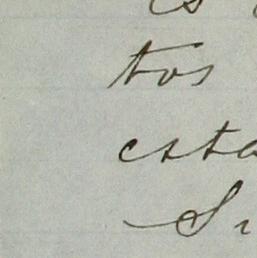 es
tos
esta
Si